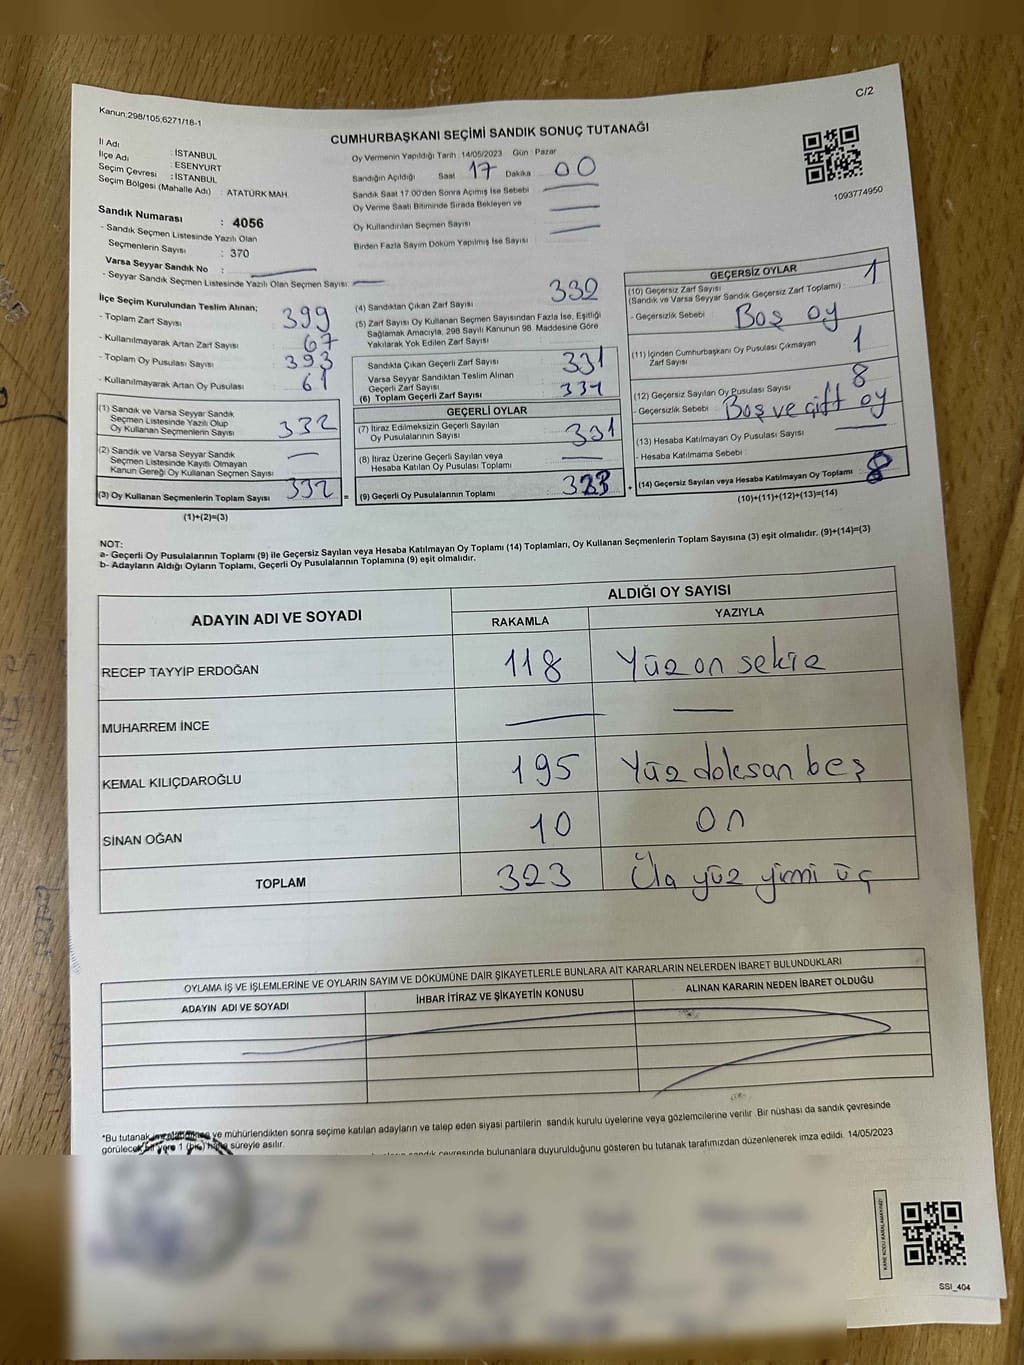 C/2
Kanun:298/105;6271/18-1
CUMHURBAŞKANI SEÇİMİ SANDIK SONUÇ TUTANAĞI
İl Adı : İSTANBUL
İlçe Adı : ESENYURT
Seçim Çevresi : İSTANBUL
Seçim Bölgesi (Mahalle Adı) : ATATÜRK MAH.
Sandık Numarası : 4056
- Sandık Seçmen Listesinde Yazılı Olan
Seçmenlerin Sayısı : 370
Varsa Seyyar Sandık No :
- Seyyar Sandık Seçmen Listesinde Yazılı Olan Seçmen Sayısı:
Oy Vermenin Yapıldığı Tarih : 14/05/2023 Gün : Pazar
Sandığın Açıldığı Saat 17 Dakika 00
Sandık Saat 17:00'den Sonra Açımış İse Sebebi
Oy Verme Saati Bitiminde Sırada Bekleyen ve
Oy Kullandırılan Seçmen Sayısı
Birden Fazla Sayım Döküm Yapılmış İse Sayısı
1093774950
İlçe Seçim Kurulundan Teslim Alınan;
- Toplam Zarf Sayısı 399
- Kullanılmayarak Artan Zarf Sayısı 67
- Toplam Oy Pusulası Sayısı 393
- Kullanılmayarak Artan Oy Pusulası 61
(1) Sandık ve Varsa Seyyar Sandık
Seçmen Listesinde Yazılı Olup
Oy Kullanan Seçmenlerin Sayısı 332
(2) Sandık ve Varsa Seyyar Sandık
Seçmen Listesinde Kayıtlı Olmayan
Kanun Gereği Oy Kullanan Seçmen Sayısı
(3) Oy Kullanan Seçmenlerin Toplam Sayısı 332 =
(1)+(2)=(3)
(4) Sandıktan Çıkan Zarf Sayısı 332
(5) Zarf Sayısı Oy Kullanan Seçmen Sayısından Fazla İse, Eşitliği
Sağlamak Amacıyla, 298 Sayılı Kanunun 98. Maddesine Göre
Yakılarak Yok Edilen Zarf Sayısı
Sandıkta Çıkan Geçerli Zarf Sayısı 331
Varsa Seyyar Sandıktan Teslim Alınan
Geçerli Zarf Sayısı
(6) Toplam Geçerli Zarf Sayısı 331
GEÇERLİ OYLAR
(7) İtiraz Edilmeksizin Geçerli Sayılan
Oy Pusulalarının Sayısı 331
(8) İtiraz Üzerine Geçerli Sayılan veya
Hesaba Katılan Oy Pusulası Toplamı
(9) Geçerli Oy Pusulalarının Toplamı 323 +
GEÇERSİZ OYLAR
(10) Geçersiz Zarf Sayısı
(Sandık ve Varsa Seyyar Sandık Geçersiz Zarf Toplamı) : 1
- Geçersizlik Sebebi : Boş oy
(11) İçinden Cumhurbaşkanı Oy Pusulası Çıkmayan
Zarf Sayısı 1
(12) Geçersiz Sayılan Oy Pusulası Sayısı 8
- Geçersizlik Sebebi : Boş ve çift oy
(13) Hesaba Katılmayan Oy Pusulası Sayısı
- Hesaba Katılmama Sebebi :
(14) Geçersiz Sayılan veya Hesaba Katılmayan Oy Toplamı 8
(10)+(11)+(12)+(13)=(14)
NOT:
a- Geçerli Oy Pusulalarının Toplamı (9) ile Geçersiz Sayılan veya Hesaba Katılmayan Oy Toplamı (14) Toplamları, Oy Kullanan Seçmenlerin Toplam Sayısına (3) eşit olmalıdır. (9)+(14)=(3)
b- Adayların Aldığı Oyların Toplamı, Geçerli Oy Pusulalarının Toplamına (9) eşit olmalıdır.
ADAYIN ADI VE SOYADI
ALDIĞI OY SAYISI
RAKAMLA YAZIYLA
RECEP TAYYİP ERDOĞAN 118 Yüz on sekiz
MUHARREM İNCE
KEMAL KILIÇDAROĞLU 195 Yüz doksan beş
SİNAN OĞAN 10 On
TOPLAM 323 Üç yüz yirmi üç
OYLAMA İŞ VE İŞLEMLERİNE VE OYLARIN SAYIM VE DÖKÜMÜNE DAİR ŞİKAYETLERLE BUNLARA AİT KARARLARIN NELERDEN İBARET BULUNDUKLARI
ADAYIN ADI VE SOYADI İHBAR İTİRAZ VE ŞİKAYETİN KONUSU ALINAN KARARIN NEDEN İBARET OLDUĞU
*Bu tutanak ve mühürlendikten sonra seçime katılan adayların ve talep eden siyasi partilerin sandık kurulu üyelerine veya gözlemcilerine verilir. Bir nüshası da sandık çevresinde
görülecek bir yere 1 (bir) hafta süreyle asılır.
sandık çevresinde bulunanlara duyurulduğunu gösteren bu tutanak tarafımızdan düzenlenerek imza edildi. 14/05/2023
KARE KODU KARALAMAYINIZ!
SSİ_404